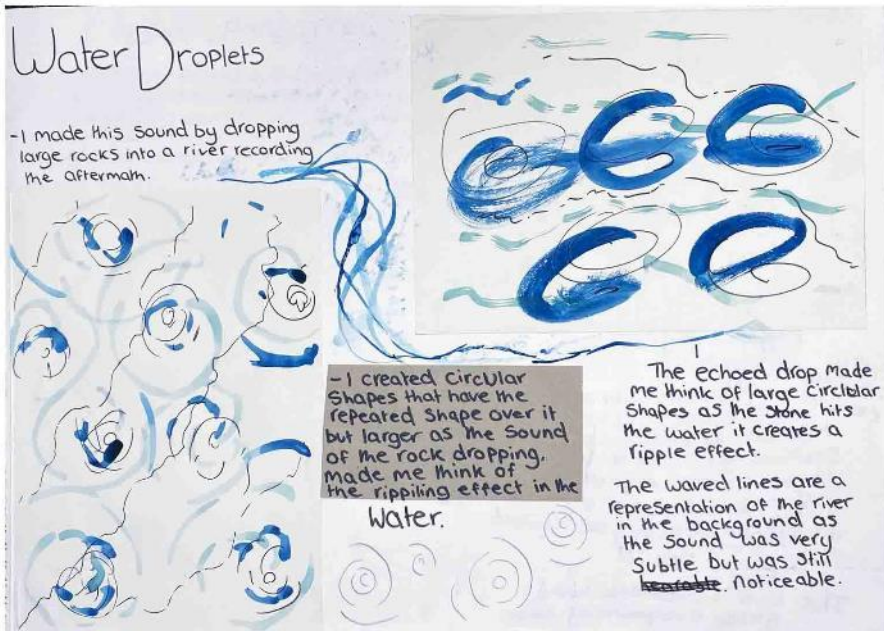 Water Droplets
-I made this sound by dropping
large rocks into a river recording
the aftermath.
-I created circular
shapes that have the
repeated shape over it
but larger as the sound
of the rock dropping,
made me think of
the rippiling effect in the
Water.
The echoed drop made
me think of large circular
shapes as the stone hits
the water it creates a
ripple effect.
The waved lines are a
representation of the river
in the background as
the sound was very
subtle but was still
noticeable.